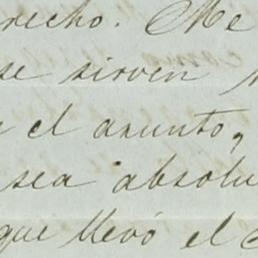 recho. Me
se sirven
el asunto,
sea absolu
que llevó el